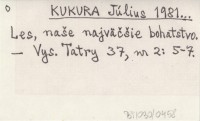 o KUKURA Július 1981...
Les, naše najväčšie bohatstvo.
— Vys. Tatry 37, nr 2: 5-7.